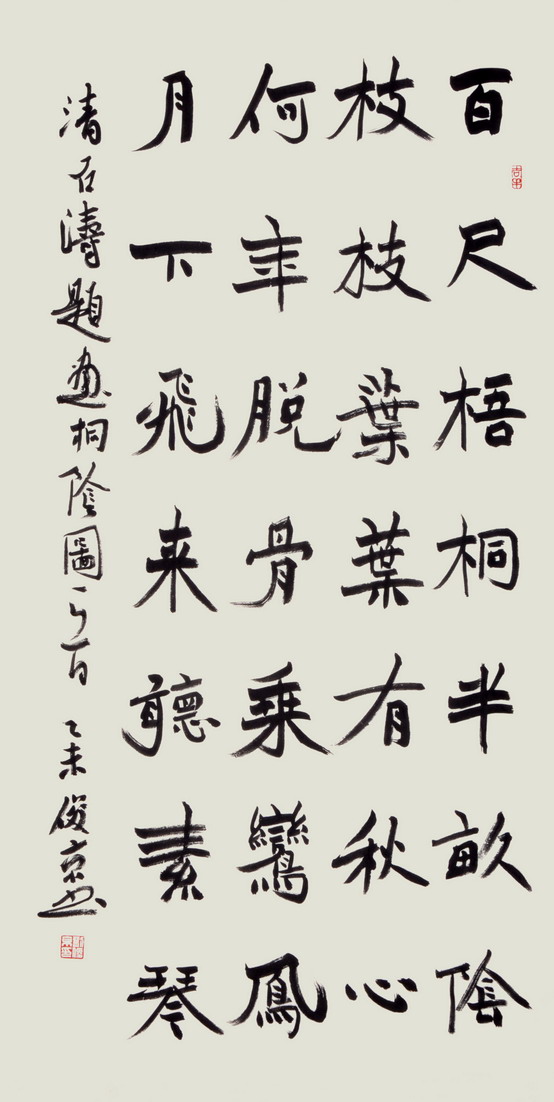 百尺梧桐半畝陰
枝枝葉葉有秋心
何年脫骨乘鸞鳳
月下飛来聽素琴
清石濤題畫桐陰圖一首 乙未俊京書